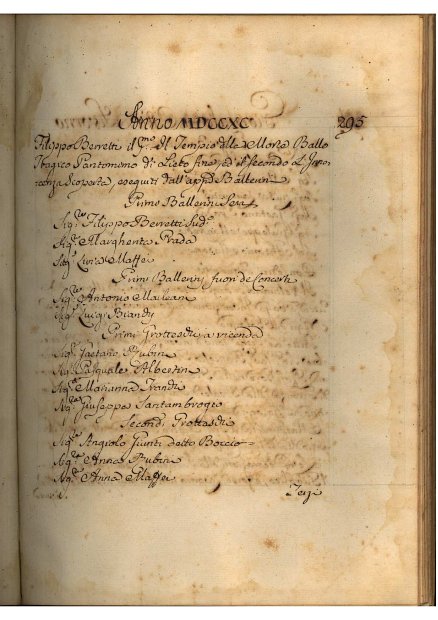 Anno MDCCXC 295
Filippo Berretti il P.mo Il Tempio della Morte Ballo
Tragico Pantomimo di Lieto fine, ed il secondo L'Inno-
cenza Scoperta, eseguiti dall'app.di Ballerini
Primi Ballerini Serj
Sig.r Filippo Berretti Sud.o
Sig.a Margherita Prada
Sig.a Maffei
Primi Ballerini fuori de Concerti
Sig.r Antonio Mariani
Sig.r Luigi Biandy
Primi Grotteschi a vicenda
Sig.r Gaetano Rubini
Sig.r Pasquale Albertin
Sig.a Marianna
Sig.r Giuseppe Santambrogio
Secondi Grotteschi
Sig.r Angiolo Giunti detto Boccio
Sig.a Anna Rubini
Sig.a Anna Maffei
Terzi